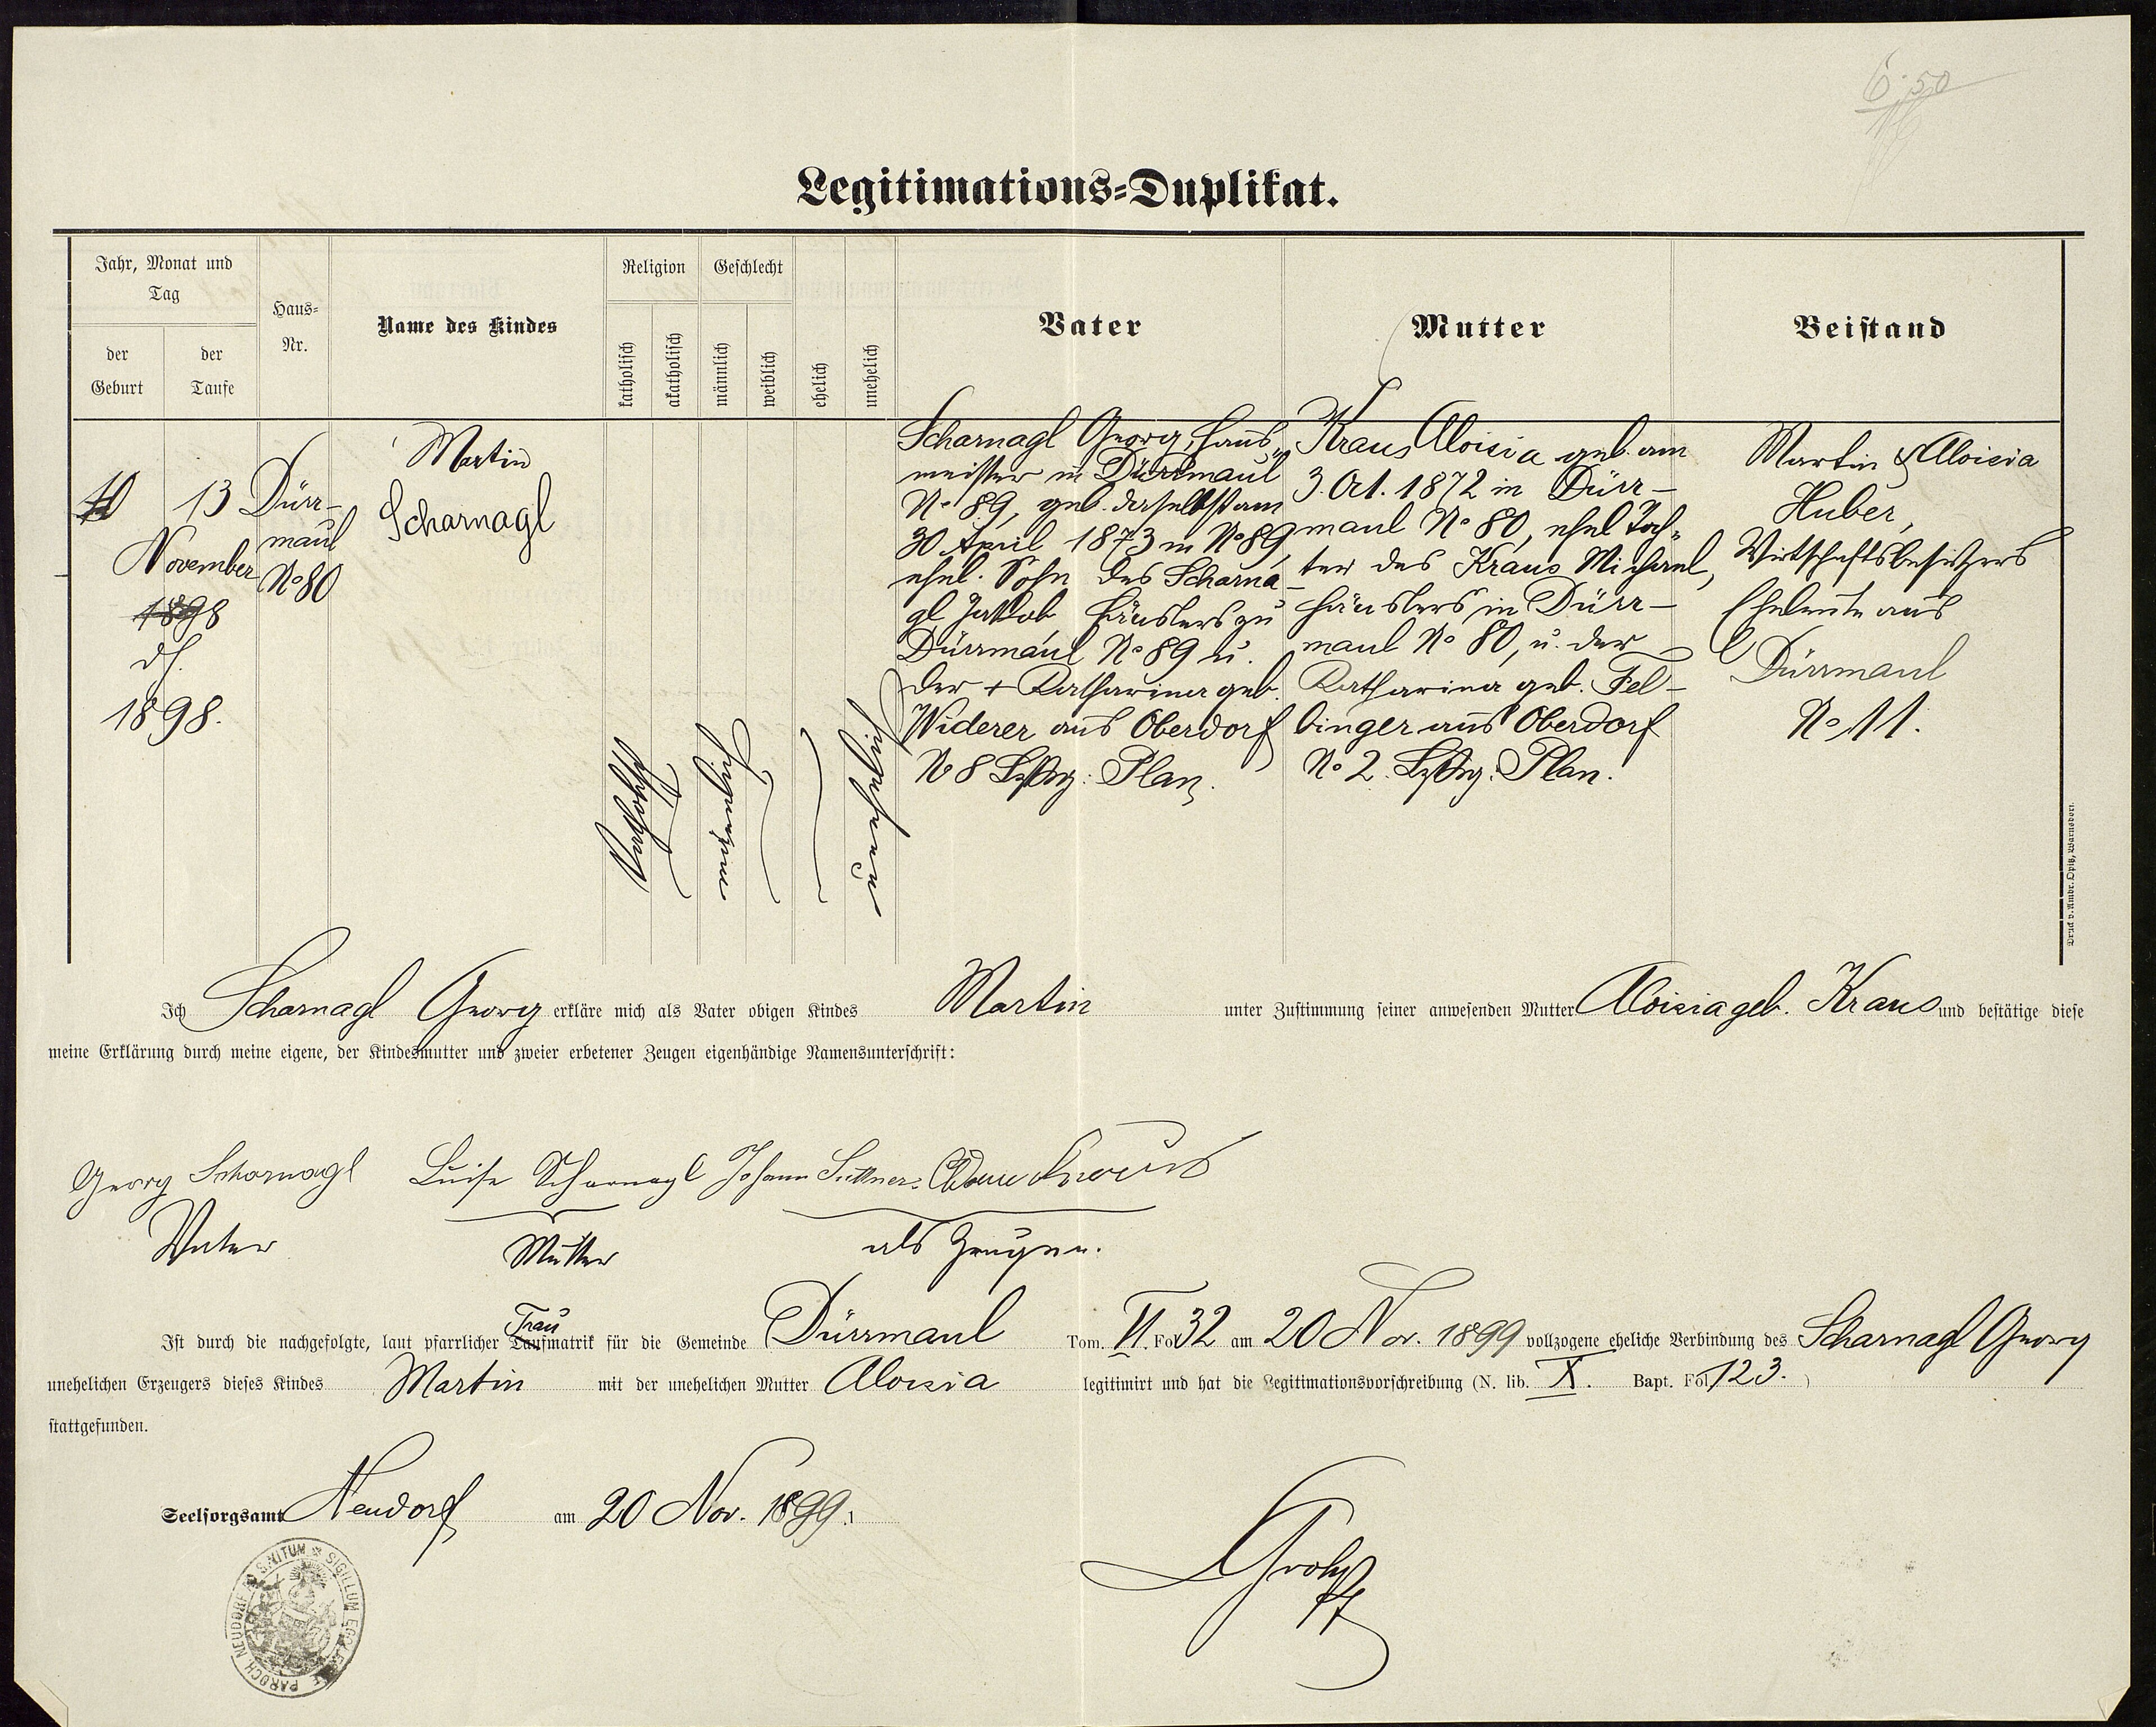 6·50
Legitimations=Duplikat.
Jahr, Monat und
Tag
der
Geburt
der
Taufe
Haus=
Nr.
Name des Kindes
Religion
katholisch
akatholisch
Geschlecht
männlich
weiblich
ehelich
unehelich
Vater
Mutter
Beistand
13
November
1898
d/.
1898.
Dürr-
maul
No 80
Martin
Scharnagl
Katholisch
männlich
unehelich
Scharnagl Georg, Haus„
meister in Dürrmaul
No 89, geb. daselbst am
30 April 1873 in No 89,
ehel. Sohn des Scharna-
gl Jakob, Häuslers zu
Dürrmaul No 89 u.
der + Katharina geb.
Widerer aus Oberdorf
No 8 Bzhg: Plan.
Kraus Aloisia geb. am
3. Oct. 1872 in Dürr-
maul No 80, ehel Toch„
ter des Kraus Michael,
Häuslers in Dürr-
maul No 80, u. der
Katharina geb. Fel-
binger aus Oberdorf
No 2. Bzhg: Plan.
Martin & Aloisia
Huber,
Wirtschaftsbesitzers
Eheleute aus
Dürrmaul
No 11.
Druck v. Ambr. Opitz, Warnsdorf.
Ich Scharnagl Georg erkläre mich als Vater obigen Kindes Martin unter Zustimmung seiner anwesenden Mutter Aloisia geb. Kraus und bestätige diese
meine Erklärung durch meine eigene, der Kindesmutter und zweier erbetener Zeugen eigenhändige Namensunterschrift:
Georg Scharnagl Luise Scharnagl Johann Kraus
Vater Mutter als Zeugen.
Trau
Ist durch die nachgefolgte, laut pfarrlicher Taufmatrik für die Gemeinde Dürrmaul Tom. VI. Fol 32 am 20 Nov. 1899 vollzogene eheliche Verbindung des Scharnagl Georg
unehelichen Erzeugers dieses Kindes Martin mit der unehelichen Mutter Aloisia legitimirt und hat die Legitimationsvorschreibung (N. lib. X. Bapt. Fol 123. )
stattgefunden.
Seelsorgsamt Neudorf am 20 Nov. 1899.
SIGILLUM ECCLESIAE PAROCH. NEUDORF AD S. VITUM